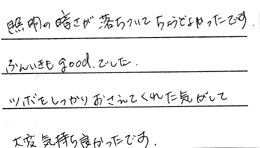 照明の暗さが落ちついてちょうどよかったです.
ふんいきもgood.でした.
ツボをしっかりおさえてくれた気がして
大変気持ち良かったです.